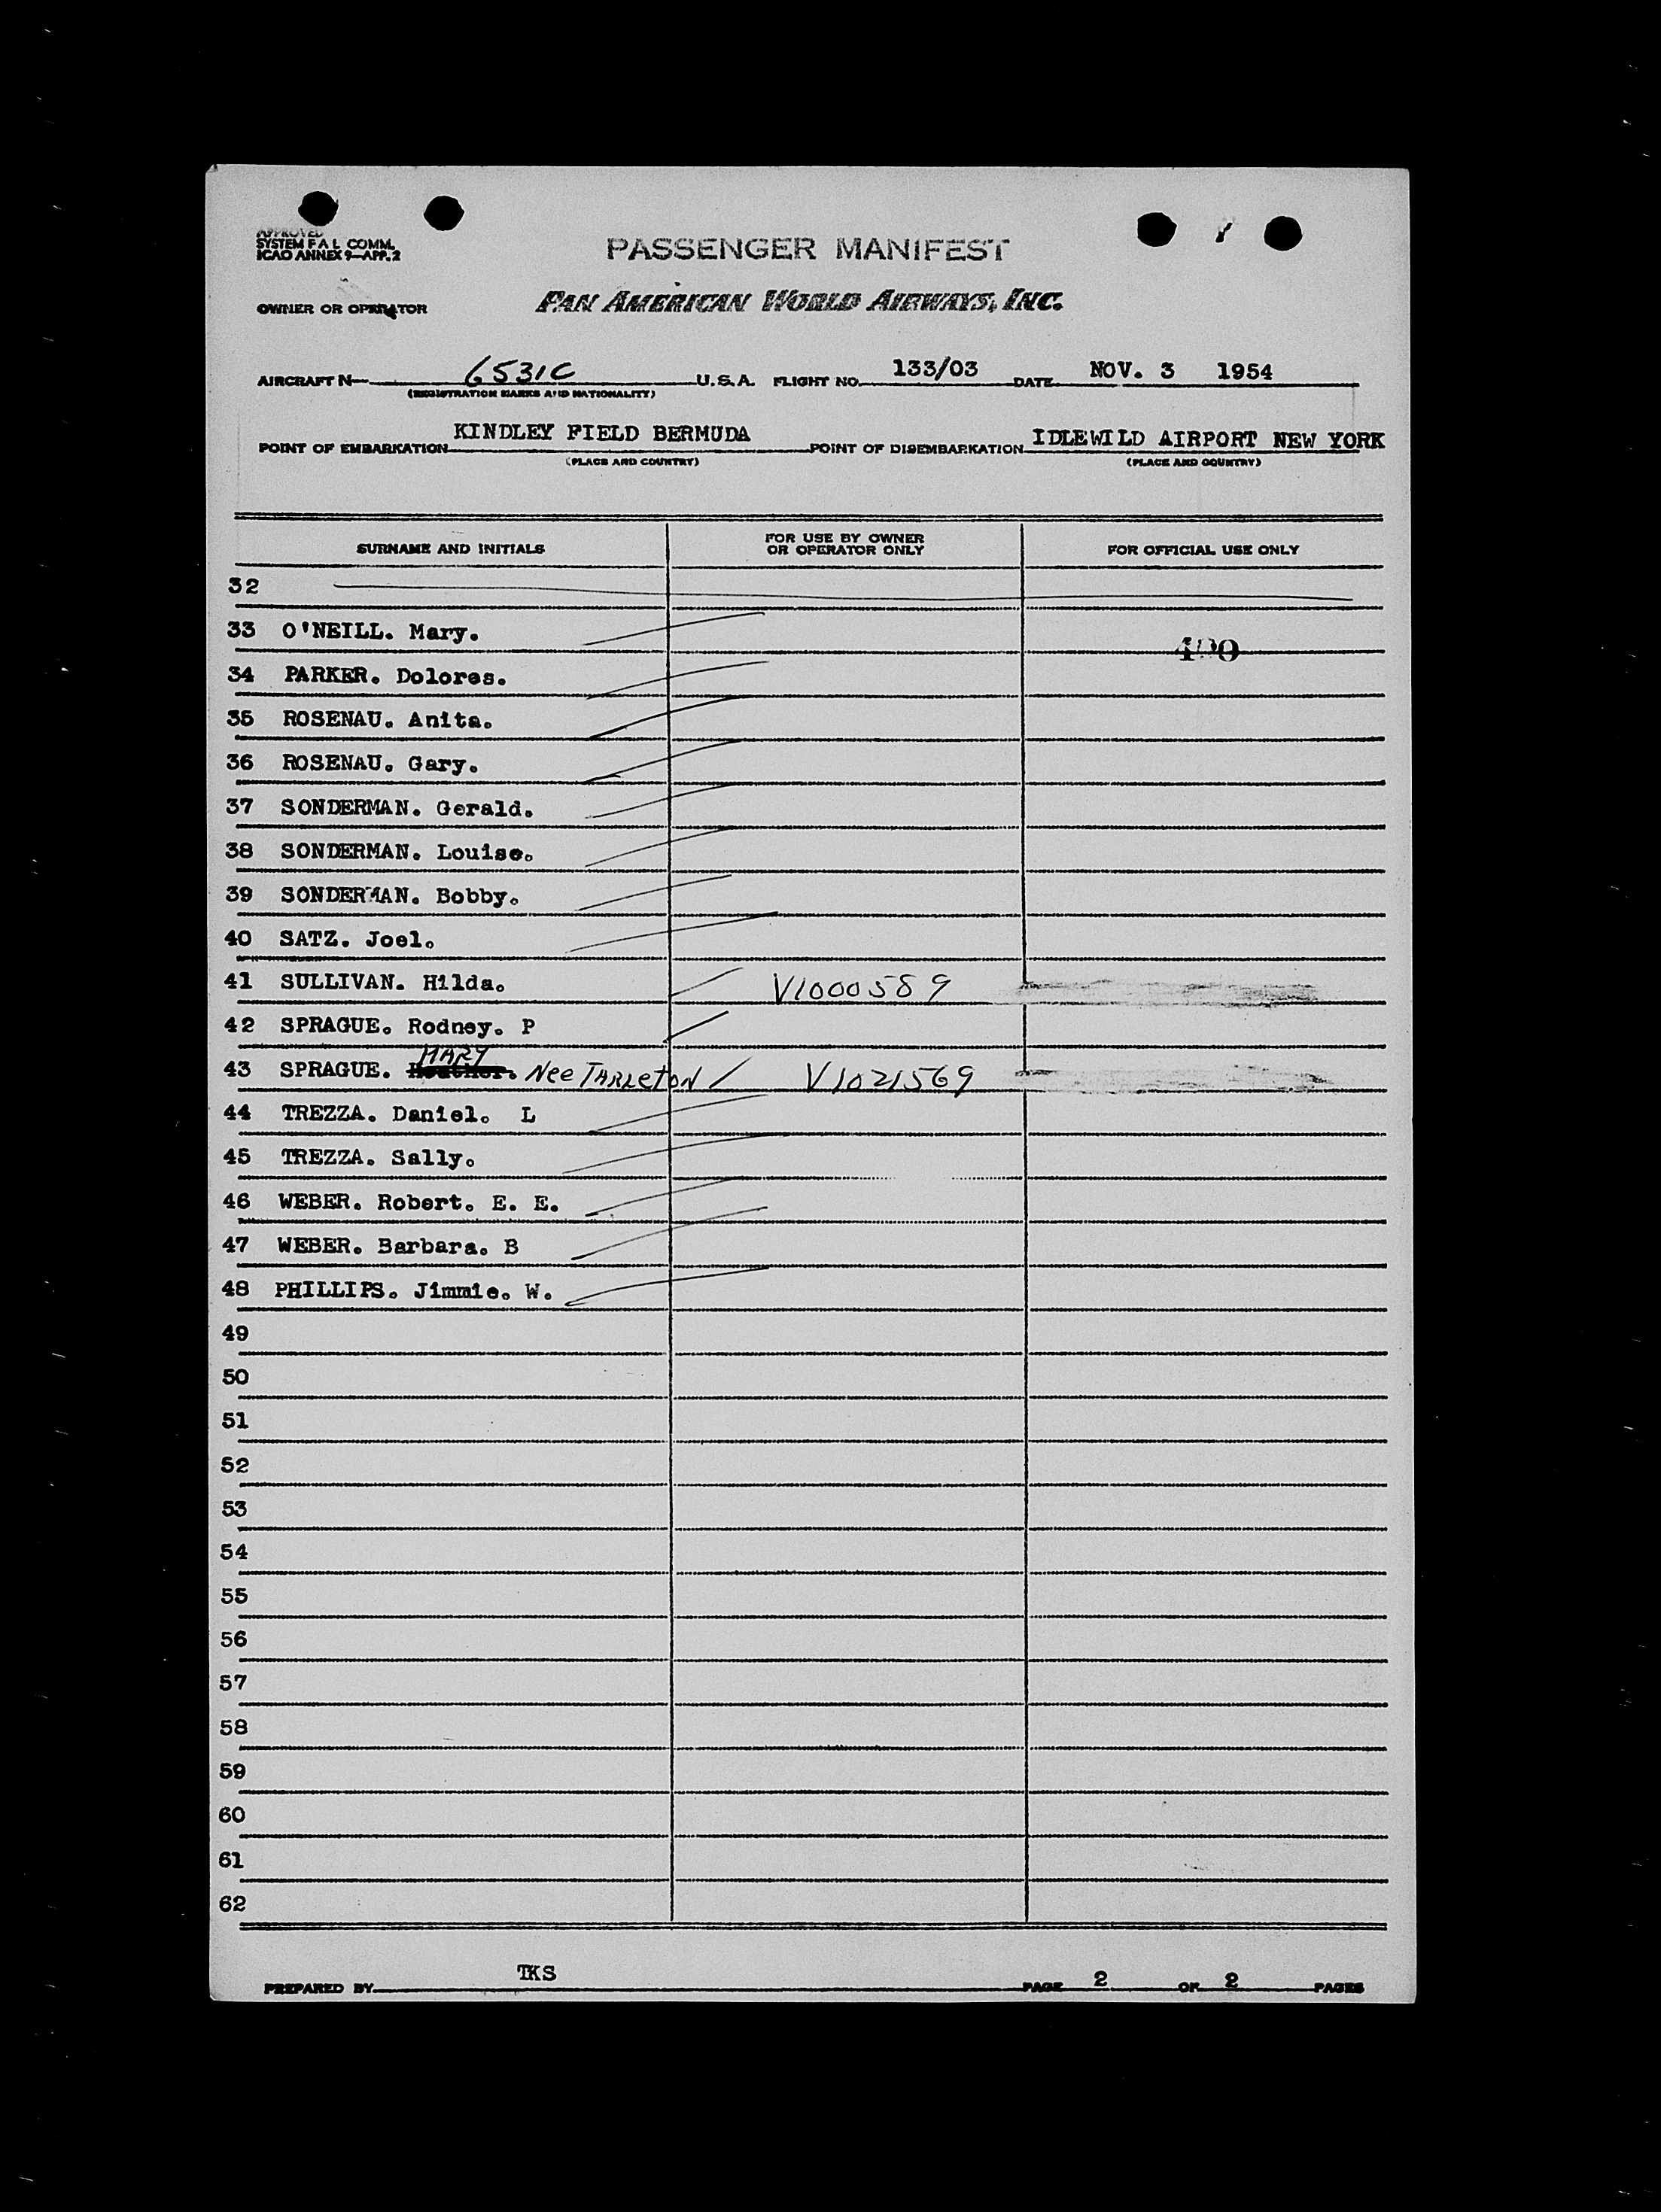 APPROVED
SYSTEM F A L COMM.
ICAO ANNEX 9—APP. 2
PASSENGER MANIFEST
OWNER OR OPERATOR PAN AMERICAN WORLD AIRWAYS, INC.
AIRCRAFT N— 6531C U.S.A. FLIGHT NO. 133/03 DATE NOV. 3 1954
(REGISTRATION MARKS AND NATIONALITY)
POINT OF EMBARKATION KINDLEY FIELD BERMUDA POINT OF DISEMBARKATION IDLEWILD AIRPORT NEW YORK
(PLACE AND COUNTRY) (PLACE AND COUNTRY)
SURNAME AND INITIALS FOR USE BY OWNER OR OPERATOR ONLY FOR OFFICIAL USE ONLY
32
33 O'NEILL. Mary.
34 PARKER. Dolores.
35 ROSENAU. Anita.
36 ROSENAU. Gary.
37 SONDERMAN. Gerald.
38 SONDERMAN. Louise.
39 SONDERMAN. Bobby.
40 SATZ. Joel.
41 SULLIVAN. Hilda. V1000589
42 SPRAGUE. Rodney. P
MARY
43 SPRAGUE. Heather. Nee TARLETON V1021569
44 TREZZA. Daniel. L
45 TREZZA. Sally.
46 WEBER. Robert. E. E.
47 WEBER. Barbara. B
48 PHILLIPS. Jimmie. W.
49
50
51
52
53
54
55
56
57
58
59
60
61
62
PREPARED BY TKS PAGE 2 OF 2 PAGES